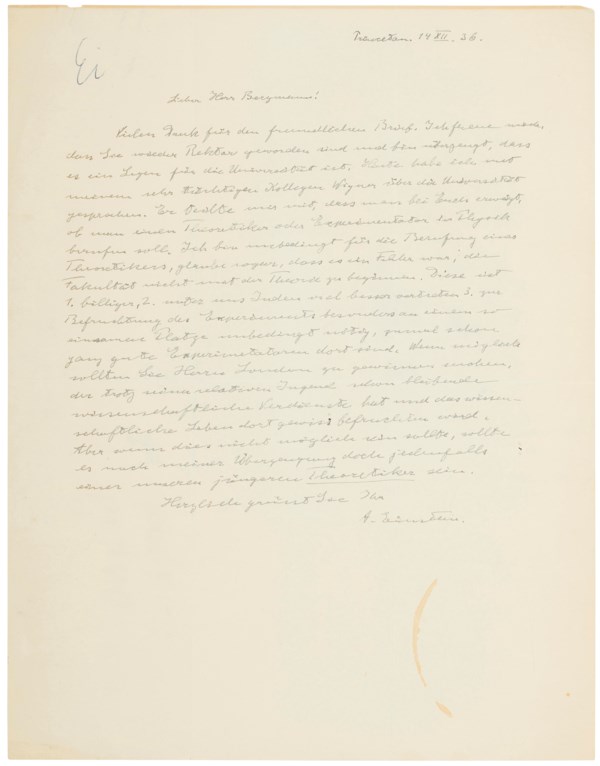 Ei
Princeton. 19 XII. 36.
Lieber Herr Bergmann!
Vielen Dank für den freundlichen Brief. Ich freue mich,
dass Sie wieder Rektor geworden sind und bin überzeugt, dass
es ein Segen für die Universität ist. Heute habe ich mit
meinem sehr tüchtigen Kollegen Wigner über die Universität
gesprochen. Er teilte mir mit, dass man bei Euch erwägt,
ob man einen Theoretiker oder Experimentator der Physik
berufen soll. Ich bin unbedingt für die Berufung eines
Theoretikers, glaube sogar, dass es ein Fehler war, die
Fakultät nicht mit der Theorie zu beginnen. Diese ist
1. billiger, 2. unter uns Juden viel besser vertreten 3. zur
Befruchtung des Experiments besonders an einem so
einsamen Platze unbedingt nötig, zumal schon
ganz gute Experimentatoren dort sind. Wenn möglich
sollten Sie Herrn London zu gewinnen suchen,
der trotz seiner relativen Jugend schon bleibende
wissenschaftliche Verdienste hat und das wissen-
schaftliche Leben dort gewiss befruchten wird.
Aber wenn dies nicht möglich sein sollte, sollte
es nach meiner Überzeugung doch jedenfalls
einer unserer jüngeren Theoretiker sein.
Herzlich grüsst Sie Ihr
A. Einstein.